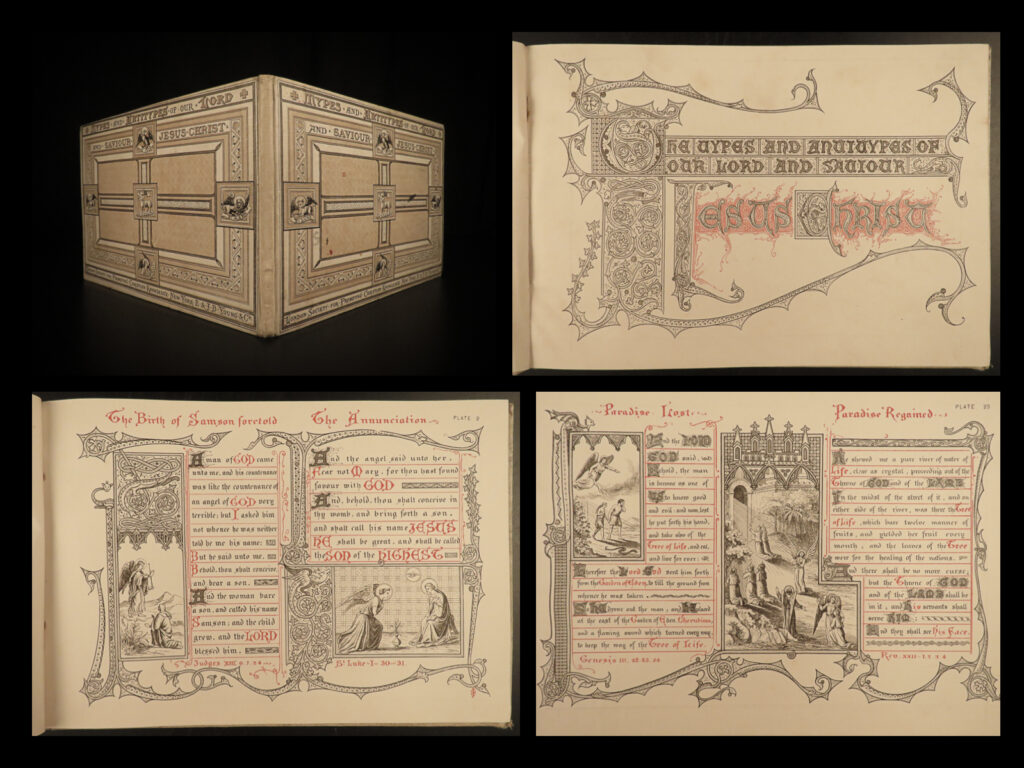 TYPES · AND · ANTITYPES · OF OUR · LORD
AND · SAVIOUR
JESUS · CHRIST ·
NEW YORK E. & J. B. YOUNG & Co.
TYPES · AND · ANTITYPES · OF OUR · LORD
AND · SAVIOUR
JESUS · CHRIST ·
LONDON SOCIETY · FOR · PROMOTING CHRISTIAN KNOWLEDGE
THE TYPES AND ANTITYPES OF
OUR LORD AND SAVIOUR
JESUS CHRIST
The Birth of Samson foretold
A man of GOD came
unto me, and his countenance
was like the countenance of
an angel of GOD very
terrible: but I asked him
not whence he was neither
told he me his name:
But he said unto me,
Behold, thou shalt conceive,
and bear a son.
And the woman bare
a son, and called his name
Samson; and the child
grew, and the LORD
blessed him.
Judges XIII
The Annunciation
PLATE 2
And the angel said unto her,
Fear not Mary, for thou hast found
favour with GOD
And, behold, thou shalt conceive in
thy womb, and bring forth a son,
and shalt call his name JESUS
HE shall be great, and shall be called
the SON of the HIGHEST
St Luke-I-30-31.
Paradise Lost
And the LORD
GOD said,
Behold, the man
is become as one of
Us to know good
and evil: and now, lest
he put forth his hand,
and take also of the
Tree of Life, and eat,
and live for ever:
Therefore the Lord God sent him forth
from the Garden of Eden, to till the ground from
whence he was taken.
So he drove out the man; and He placed
at the east of the Garden of Eden Cherubims,
and a flaming sword which turned every way,
to keep the way of the Tree of Life.
Genesis III. 22. 23. 24
Paradise Regained
PLATE
He shewed me a pure river of water of
Life, clear as crystal, proceeding out of the
Throne of GOD and of the LAMB.
In the midst of the street of it, and on
either side of the river, was there the Tree
of Life, which bare twelve manner of
fruits, and yielded her fruit every
month, and the leaves of the Tree
were for the healing of the nations.
And there shall be no more curse;
but the Throne of GOD
and of the LAMB shall be
in it; and His servants shall
serve HIM:
And they shall see His Face.
Rev. XXII-1. 2. 3. 4